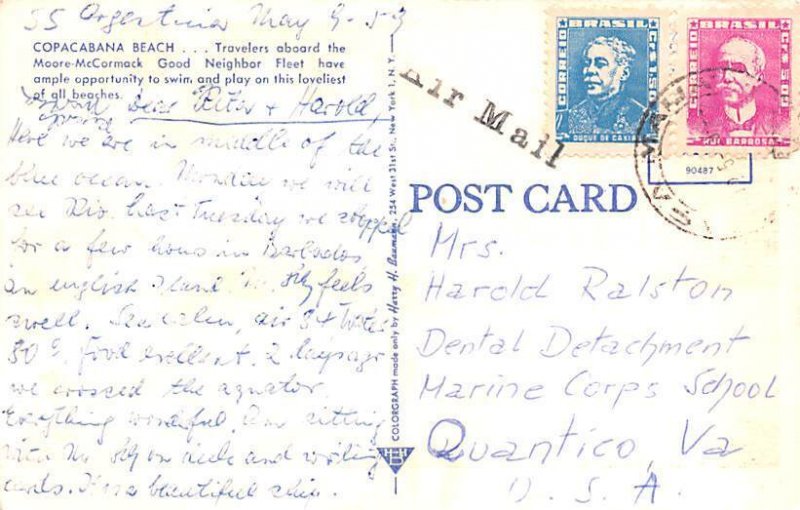 SS Argentina May 9-53
COPACABANA BEACH . . . Travelers aboard the
Moore-McCormack Good Neighbor Fleet have
ample opportunity to swim and play on this loveliest
of all beaches.
Dear Rita + Harold,
Here we are in middle of the
blue ocean. Monday we will
see Rio. Last Tuesday we stopped
for a few hours in Barbados
an english Island. feels
swell. Sea calm, air 84 Water
80°. Food excellent. 2 days ago
we crossed the aquator.
Everything wonderful. Am sitting
with on deck and writing
cards. It is a beautiful ship.
COLORGRAPH made only by Harry H. Baumann, 254 West 31st St., New York 1, N. Y.
HHB
Air Mail
BRASIL
CORREIO
DUQUE DE CAXIAS
BRASIL
CORREIO
RUI BARBOSA
90487
POST CARD
Mrs.
Harold Ralston
Dental Detachment
Marine Corps School
Quantico, Va
U. S. A.